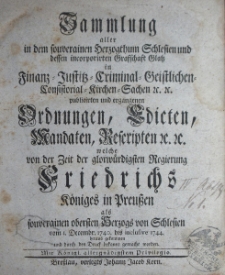 Sammlung
aller
in dem souverainen Herzogthum Schlesien und
dessen incorporirten Graffschafft Glatz
in
Finanz-Justitz-Criminal-Geistlichen-
Consistorial-Kirchen-Sachen ꝛc. ꝛc.
publicirten und ergangenen
Ordnungen, Edicten,
Mandaten, Rescripten ꝛc. ꝛc.
welche
von der Zeit der glorwürdigsten Regierung
Friedrichs
Königes in Preußen
als
souverainen obersten Hertzogs von Schlesien
vom 1. Decembr. 1740. bis inclusive 1744.
heraus gekommen
und durch den Druck bekannt gemacht worden.
Mit Königl. allergnädigsten Privilegio.
Breßlau, verlegts Johann Jacob Korn.